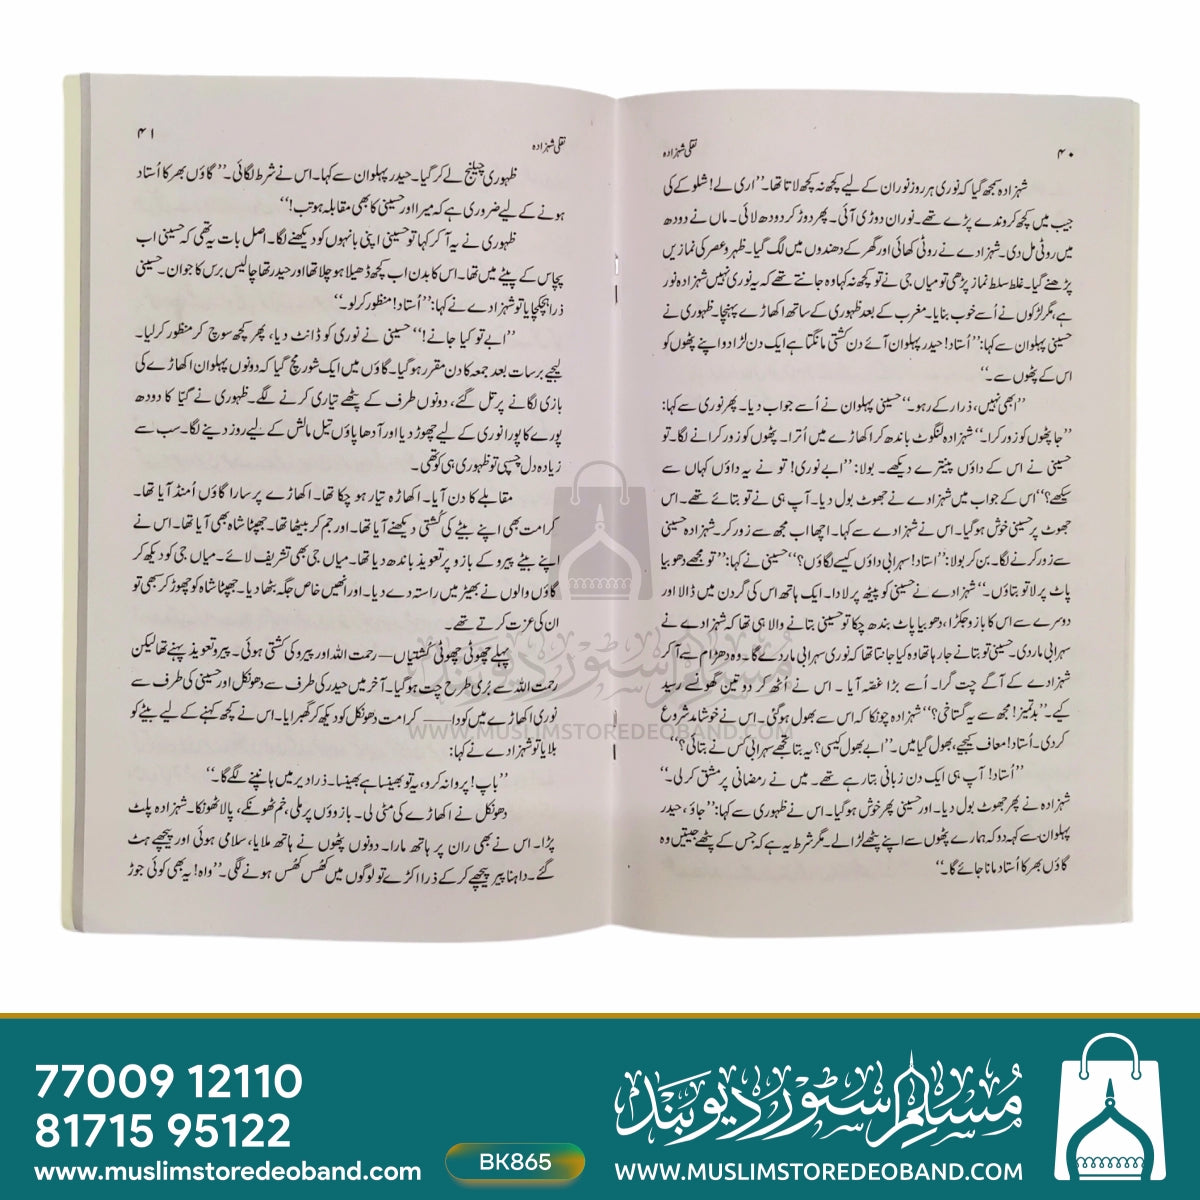 ۴۰
نقلی شہزادہ
شہزادہ سمجھ گیا کہ نوری ہر روز نوران کے لیے کچھ نہ کچھ لاتا تھا۔ ”اری لے! شلوکے کی
جیب میں کچھ کروندے پڑے تھے۔ نوران دوڑی آئی۔ پھر دوڑ کر دودھ لائی۔ ماں نے دودھ
میں روٹی مل دی۔ شہزادے نے روٹی کھائی اور گھر کے دھندوں میں لگ گیا۔ ظہر و عصر کی نمازیں
پڑھنے گیا۔ غلط سلط نماز پڑھی تو میاں جی نے تو کچھ نہ کہا وہ جانتے تھے کہ یہ نوری نہیں شہزادہ نور
ہے، مگر لڑکوں نے اُسے خوب بنایا۔ مغرب کے بعد ظہوری کے ساتھ اکھاڑے پہنچا۔ ظہوری نے
حسینی پہلوان سے کہا: ”اُستاد! حیدر پہلوان آئے دن کشتی مانگتا ہے ایک دن لڑا دو اپنے پٹھوں کو
اس کے پٹھوں سے۔“
”ابھی نہیں، ذرا رکے رہو۔“ حسینی پہلوان نے اُسے جواب دیا۔ پھر نوری سے کہا:
”جا پٹھوں کو زور کرا۔“ شہزادہ لنگوٹ باندھ کر اکھاڑے میں اُترا۔ پٹھوں کو زور کرانے لگا۔ تو
حسینی نے اس کے داؤں پینترے دیکھے۔ بولا: ”ابے نوری! تو نے یہ داؤں کہاں سے
سیکھے؟“ اس کے جواب میں شہزادے نے جھوٹ بول دیا۔ آپ ہی نے تو بتائے تھے۔ اس
جھوٹ پر حسینی خوش ہو گیا۔ اس نے شہزادے سے کہا۔ اچھا اب مجھ سے زور کر۔ شہزادہ حسینی
سے زور کرنے لگا۔ بن کر بولا: ”استاد! سہرابی داؤں کیسے لگاؤں؟“ حسینی نے کہا: ”تو مجھے دھوبیا
پاٹ پر لا تو بتاؤں۔“ شہزادے نے حسینی کو پیٹھ پر لادا۔ ایک ہاتھ اس کی گردن میں ڈالا اور
دوسرے سے اس کا بازو جکڑا، دھوبیا پاٹ بندھ چکا تو حسینی بتانے والا ہی تھا کہ شہزادے نے
سہرابی مار دی۔ حسینی تو بتانے جا رہا تھا وہ کیا جانتا تھا کہ نوری سہرابی مار دے گا۔ وہ دھڑام سے آ کر
شہزادے کے آگے چت گرا۔ اُسے بڑا غصہ آیا۔ اس نے اُٹھ کر دو تین گھونسے رسید
کیے۔ ”بدتمیز! مجھ سے یہ گستاخی؟“ شہزادہ چونکا کہ اس سے بھول ہو گئی۔ اس نے خوشامد شروع
کر دی۔ اُستاد! معاف کیجیے، بھول گیا میں۔ ”ابے بھول کیسی؟ یہ بتا تجھے سہرابی کس نے بتائی؟“
”اُستاد! آپ ہی ایک دن زبانی بتا رہے تھے۔ میں نے رمضانی پر مشق کر لی۔“
شہزادہ نے پھر جھوٹ بول دیا۔ اور حسینی پھر خوش ہو گیا۔ اس نے ظہوری سے کہا: ”جاؤ، حیدر
پہلوان سے کہہ دو کہ ہمارے پٹھوں سے اپنے پٹھے لڑا لے۔ مگر شرط یہ ہے کہ جس کے پٹھے جیتیں وہ
گاؤں بھر کا اُستاد مانا جائے گا۔“
۴۱
نقلی شہزادہ
ظہوری چیلنج لے کر گیا۔ حیدر پہلوان سے کہا۔ اس نے شرط لگائی۔ ”گاؤں بھر کا اُستاد
ہونے کے لیے ضروری ہے کہ میرا اور حسینی کا بھی مقابلہ ہو تب!“
ظہوری نے یہ آ کر کہا تو حسینی اپنی بانہوں کو دیکھنے لگا۔ اصل بات یہ تھی کہ حسینی اب
پچاس کے پیٹے میں تھا۔ اس کا بدن اب کچھ ڈھیلا ہو چلا تھا اور حیدر تھا چالیس برس کا جوان۔ حسینی
ذرا ہچکچایا تو شہزادے نے کہا: ”اُستاد! منظور کر لو۔“
”ابے تو کیا جانے!“ حسینی نے نوری کو ڈانٹ دیا، پھر کچھ سوچ کر منظور کر لیا۔
لیجیے برسات بعد جمعہ کا دن مقرر ہو گیا۔ گاؤں میں ایک شور مچ گیا کہ دونوں پہلوان اکھاڑے کی
بازی لگانے پر تل گئے، دونوں طرف کے پٹھے تیاری کرنے لگے۔ ظہوری نے گیّا کا دودھ
پورے کا پورا نوری کے لیے چھوڑ دیا اور آدھا پاؤں تیل مالش کے لیے روز دینے لگا۔ سب سے
زیادہ دل چسپی تو ظہوری ہی کو تھی۔
مقابلے کا دن آیا۔ اکھاڑہ تیار ہو چکا تھا۔ اکھاڑے پر سارا گاؤں اُمنڈ آیا تھا۔
کرامت بھی اپنے بیٹے کی کُشتی دیکھنے آیا تھا۔ اور جم کر بیٹھا تھا۔ جھپٹا شاہ بھی آیا تھا۔ اس نے
اپنے بیٹے پیرو کے بازو پر تعویذ باندھ دیا تھا۔ میاں جی بھی تشریف لائے۔ میاں جی کو دیکھ کر
گاؤں والوں نے بھیڑ میں راستہ دے دیا۔ اور انھیں خاص جگہ بٹھا دیا۔ جھپٹا شاہ کو چھوڑ کر سبھی تو
ان کی عزت کرتے تھے۔
پہلے چھوٹی چھوٹی کُشتیاں— رحمت اللہ اور پیرو کی کشتی ہوئی۔ پیرو تعویذ پہنے تھا لیکن
رحمت اللہ سے بُری طرح چت ہو گیا۔ آخر میں حیدر کی طرف سے دھونکل اور حسینی کی طرف سے
نوری اکھاڑے میں کودا—— کرامت دھونکل کو دیکھ کر گھبرایا۔ اس نے کچھ کہنے کے لیے بیٹے کو
بلایا تو شہزادے نے کہا:
”باپ! پروا نہ کرو، یہ تو بھینسا ہے بھینسا۔ ذرا دیر میں ہانپنے لگے گا۔“
دھونکل نے اکھاڑے کی مٹی لی۔ بازوؤں پر ملی، خم ٹھونکے، پالا ٹھونکا۔ شہزادہ پلٹ
پڑا۔ اس نے بھی ران پر ہاتھ مارا۔ دونوں پٹھوں نے ہاتھ ملایا، سلامی ہوئی اور پیچھے ہٹ
گئے۔ داہنا پیر پیچھے کر کے ذرا اکڑے تو لوگوں میں کُھس کُھس ہونے لگی۔ ”واہ! یہ بھی کوئی جوڑ
مسلم سٹور دیوبند
WWW.MUSLIMSTOREDEOBAND.COM
77009 12110
81715 95122
www.muslimstoredeoband.com
BK865
مسلم سٹور دیوبند
WWW.MUSLIMSTOREDEOBAND.COM